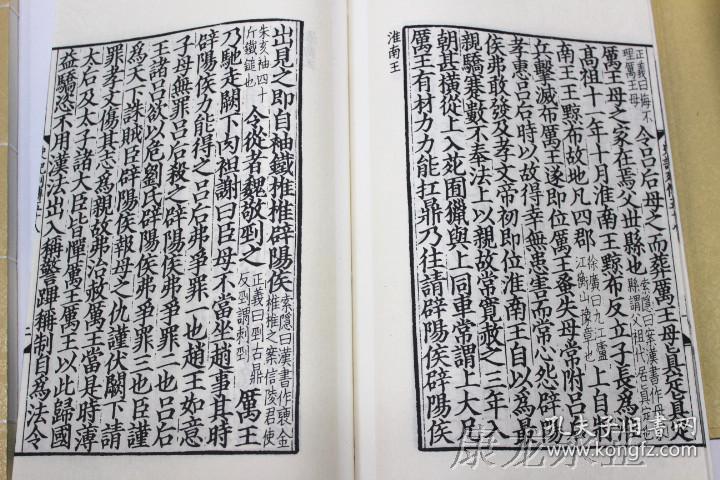 正義曰悔不理厲王母 令吕后母之而葬厲王母真定真定
厲王母之家在焉父世縣也 索隱曰案漢書作母家縣謂父祖代居真定也
高祖十一年十月淮南王黥布反立子長爲淮
南王王黥布故地凡四郡 徐廣曰九江廬江衡山豫章也 上自將
兵擊滅布厲王遂即位厲王蚤失母常附吕后
孝惠吕后時以故得幸無患害而常心怨辟陽
侯弗敢發及孝文帝初即位淮南王自以爲最
親驕蹇數不奉法上以親故常寬赦之三年入
朝甚橫從上入苑囿獵與上同車常謂上大兄
厲王有材力力能扛鼎乃往請辟陽侯辟陽侯
淮南王
出見之即自袖鐵椎椎辟陽侯 索隱曰漢書作裹金椎椎之案信陵君使
朱亥袖四十斤鐵鎚也 令從者魏敬剄之 正義曰剄古鼎反剄謂刺剄 厲王
乃馳走闕下肉袒謝曰臣母不當坐趙事其時
辟陽侯力能得之吕后弗爭罪一也趙王如意
子母無罪吕后殺之辟陽侯弗爭罪二也吕后
王諸吕欲以危劉氏辟陽侯弗爭罪三也臣謹
爲天下誅賊臣辟陽侯報母之仇謹伏闕下請
罪孝文傷其志爲親故弗治赦厲王當是時薄
太后及太子諸大臣皆憚厲王厲王以此歸國
益驕恣不用漢法出入稱警蹕稱制自爲法令
孔夫子旧书网
www.kongfz.com